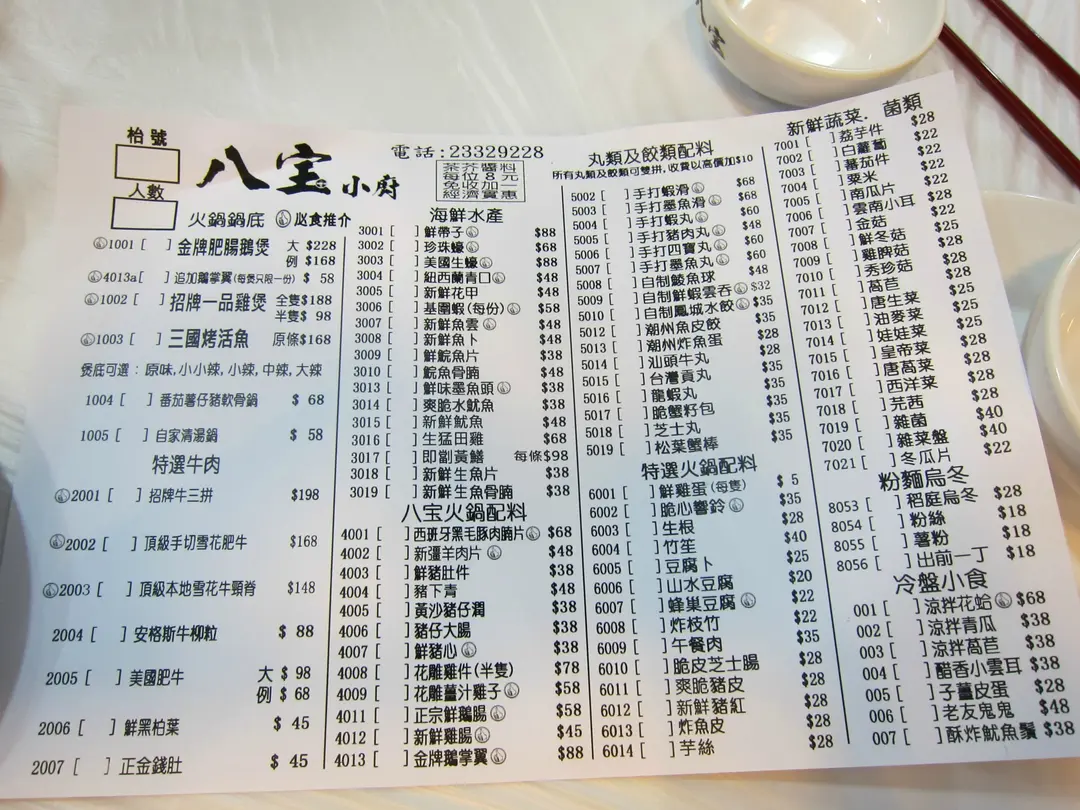 枱號
人數
八宝小廚
電話:23329228
茶芥醬料
每位8元
免收加一
經濟實惠
火鍋鍋底 必食推介
1001 [ ] 金牌肥腸鵝煲 大 $228
例 $168
4013a[ ] 追加鵝掌翼(每煲只限一份) $ 58
1002 [ ] 招牌一品雞煲 全隻$188
半隻$ 98
1003 [ ] 三國烤活魚 原條$168
煲底可選:原味,小小辣,小辣,中辣,大辣
1004 [ ] 番茄薯仔豬軟骨鍋 $ 68
1005 [ ] 自家清湯鍋 $ 58
特選牛肉
2001 [ ] 招牌牛三拼 $198
2002 [ ] 頂級手切雪花肥牛 $168
2003 [ ] 頂級本地雪花牛頸脊 $148
2004 [ ] 安格斯牛柳粒 $ 88
2005 [ ] 美國肥牛 大 $ 98
例 $ 68
2006 [ ] 鮮黑柏葉 $ 45
2007 [ ] 正金錢肚 $ 45
海鮮水產
3001 [ ] 鮮帶子 $88
3002 [ ] 珍珠蠔 $68
3003 [ ] 美國生蠔 $88
3004 [ ] 紐西蘭青口 $48
3005 [ ] 新鮮花甲 $48
3006 [ ] 基圍蝦(每份) $58
3007 [ ] 新鮮魚雲 $48
3008 [ ] 新鮮魚卜 $48
3009 [ ] 鮮鯇魚片 $38
3010 [ ] 鯇魚骨腩 $48
3013 [ ] 鮮味墨魚頭 $38
3014 [ ] 爽脆水魷魚 $38
3015 [ ] 新鮮魷魚 $48
3016 [ ] 生猛田雞 $68
3017 [ ] 即劏黃鱔 每條$98
3018 [ ] 新鮮生魚片 $38
3019 [ ] 新鮮生魚骨腩 $38
八宝火鍋配料
4001 [ ] 西班牙黑毛豚肉腩片 $68
4002 [ ] 新彊羊肉片 $48
4003 [ ] 鮮豬肚件 $38
4004 [ ] 豬下青 $48
4005 [ ] 黃沙豬仔潤 $38
4006 [ ] 豬仔大腸 $38
4007 [ ] 鮮豬心 $38
4008 [ ] 花雕雞件(半隻) $78
4009 [ ] 花雕薑汁雞子 $58
4011 [ ] 正宗鮮鵝腸 $58
4012 [ ] 新鮮雞腸 $45
4013 [ ] 金牌鵝掌翼 $88
丸類及餃類配料
所有丸類及餃類可雙拼,收費以高價加$10
5002 [ ] 手打蝦滑 $68
5003 [ ] 手打墨魚滑 $68
5004 [ ] 手打蝦丸 $60
5005 [ ] 手打豬肉丸 $48
5006 [ ] 手打四寶丸 $60
5007 [ ] 手打墨魚丸 $60
5008 [ ] 自制鯪魚球 $48
5009 [ ] 自制鮮蝦雲吞 $32
5010 [ ] 自制鳳城水餃 $35
5012 [ ] 潮州魚皮餃 $35
5013 [ ] 潮州炸魚蛋 $28
5014 [ ] 汕頭牛丸 $28
5015 [ ] 台灣貢丸 $35
5016 [ ] 龍蝦丸 $35
5017 [ ] 脆蟹籽包 $35
5018 [ ] 芝士丸 $35
5019 [ ] 松葉蟹棒 $35
特選火鍋配料
6001 [ ] 鮮雞蛋(每隻) $ 5
6002 [ ] 脆心響鈴 $35
6003 [ ] 生根 $28
6004 [ ] 竹笙 $40
6005 [ ] 豆腐卜 $25
6006 [ ] 山水豆腐 $20
6007 [ ] 蜂巢豆腐 $22
6008 [ ] 炸枝竹 $22
6009 [ ] 午餐肉 $35
6010 [ ] 脆皮芝士腸 $28
6011 [ ] 爽脆豬皮 $28
6012 [ ] 新鮮豬紅 $28
6013 [ ] 炸魚皮 $28
6014 [ ] 芋絲 $28
新鮮蔬菜. 菌類
7001 [ ] 荔芋件 $28
7002 [ ] 白蘿蔔 $22
7003 [ ] 蕃茄件 $22
7004 [ ] 粟米 $22
7005 [ ] 南瓜片 $22
7006 [ ] 雲南小耳 $28
7007 [ ] 金菇 $22
7008 [ ] 鮮冬菇 $28
7009 [ ] 雞脾菇 $28
7010 [ ] 秀珍菇 $28
7011 [ ] 萵苣 $28
7012 [ ] 唐生菜 $25
7013 [ ] 油麥菜 $25
7014 [ ] 娃娃菜 $25
7015 [ ] 皇帝菜 $28
7016 [ ] 唐萵菜 $28
7017 [ ] 西洋菜 $28
7018 [ ] 芫茜 $28
7019 [ ] 雜菌 $40
7020 [ ] 雜菜盤 $40
7021 [ ] 冬瓜片 $22
粉麵烏冬
8053 [ ] 稻庭烏冬 $28
8054 [ ] 粉絲 $18
8055 [ ] 薯粉 $18
8056 [ ] 出前一丁 $18
冷盤小食
001 [ ] 涼拌花蛤 $68
002 [ ] 涼拌青瓜 $38
003 [ ] 涼拌萵苣 $38
004 [ ] 醋香小雲耳 $38
005 [ ] 子薑皮蛋 $28
006 [ ] 老友鬼鬼 $48
007 [ ] 酥炸魷魚鬚 $38